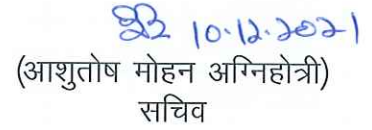 10.12.2021
(आशुतोष मोहन अग्निहोत्री)
सचिव